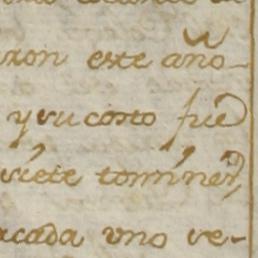 ron este año
y su costo fue
siete tomines,
acada uno ve-